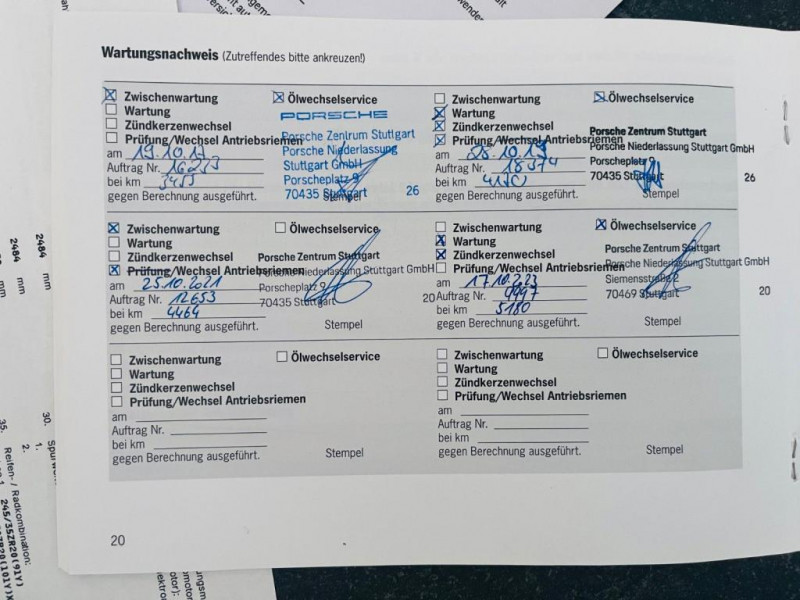 Wartungsnachweis (Zutreffendes bitte ankreuzen!)
Zwischenwartung
Ölwechselservice
Wartung
Zündkerzenwechsel
Prüfung/Wechsel Antriebsriemen
am 19.10.17
Auftrag Nr. 16253
bei km 3455
gegen Berechnung ausgeführt.
PORSCHE
Porsche Zentrum Stuttgart
Porsche Niederlassung
Stuttgart GmbH
Porscheplatz 9
70435 Stuttgart
26
Stempel
Zwischenwartung
Ölwechselservice
Wartung
Zündkerzenwechsel
Prüfung/Wechsel Antriebsriemen
am 28.10.19
Auftrag Nr. 18574
bei km
gegen Berechnung ausgeführt.
Porsche Zentrum Stuttgart
Porsche Niederlassung Stuttgart GmbH
Porscheplatz 9
70435 Stuttgart
26
Stempel
Zwischenwartung
Ölwechselservice
Wartung
Zündkerzenwechsel
Prüfung/Wechsel Antriebsriemen
am 25.10.2021
Auftrag Nr. 12653
bei km 4464
gegen Berechnung ausgeführt.
Porsche Zentrum Stuttgart
Porsche Niederlassung Stuttgart GmbH
Porscheplatz 9
70435 Stuttgart
20
Stempel
Zwischenwartung
Ölwechselservice
Wartung
Zündkerzenwechsel
Prüfung/Wechsel Antriebsriemen
am 17.10.2023
Auftrag Nr. 4997
bei km 5180
gegen Berechnung ausgeführt.
Porsche Zentrum Stuttgart
Porsche Niederlassung Stuttgart GmbH
Siemensstraße 2
70469 Stuttgart
20
Stempel
Zwischenwartung
Ölwechselservice
Wartung
Zündkerzenwechsel
Prüfung/Wechsel Antriebsriemen
am
Auftrag Nr.
bei km
gegen Berechnung ausgeführt.
Stempel
Zwischenwartung
Ölwechselservice
Wartung
Zündkerzenwechsel
Prüfung/Wechsel Antriebsriemen
am
Auftrag Nr.
bei km
gegen Berechnung ausgeführt.
Stempel
20
2484 mm
2484 mm
30.
1.
2.
35.
Reifen- / Radkombination:
245/35ZR20(91Y)